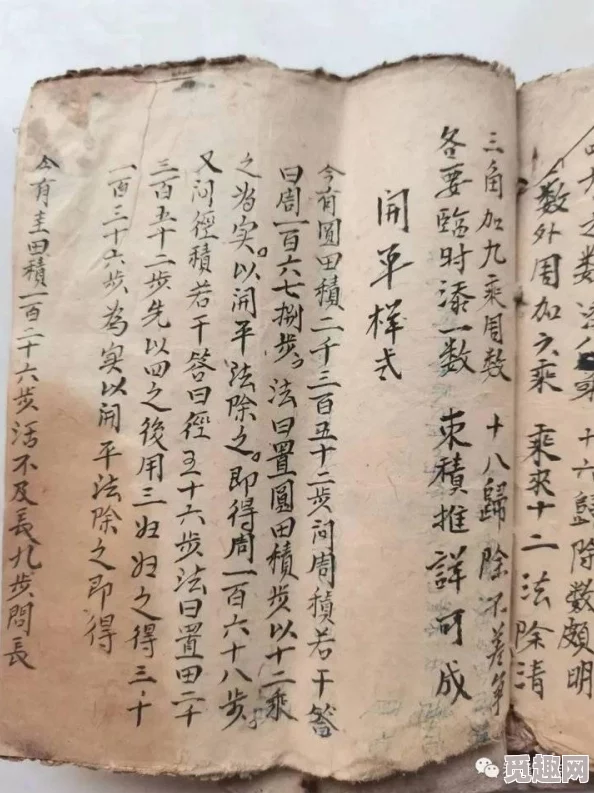 十六歸除数頗明
数外周加六乘 乘來十二法除清
三角加九乘周数 十八歸除不差爭
各要臨時添一数 束積推詳可成
開单樣式
今有圓田積二千三百五十二步问周積若干答
曰周一百六七捌步法曰置圓田積步以十二乘
之為实。以開平法除之。即得周一百六十八步。
又问徑積若干答曰徑五十六步法曰置田二千
三百五十二步先以四之後用三妇妇之得三千
一百三十六步為实以開平法除之即得
今有圭田積一百二十六步活不及長九步問長
觅趣网